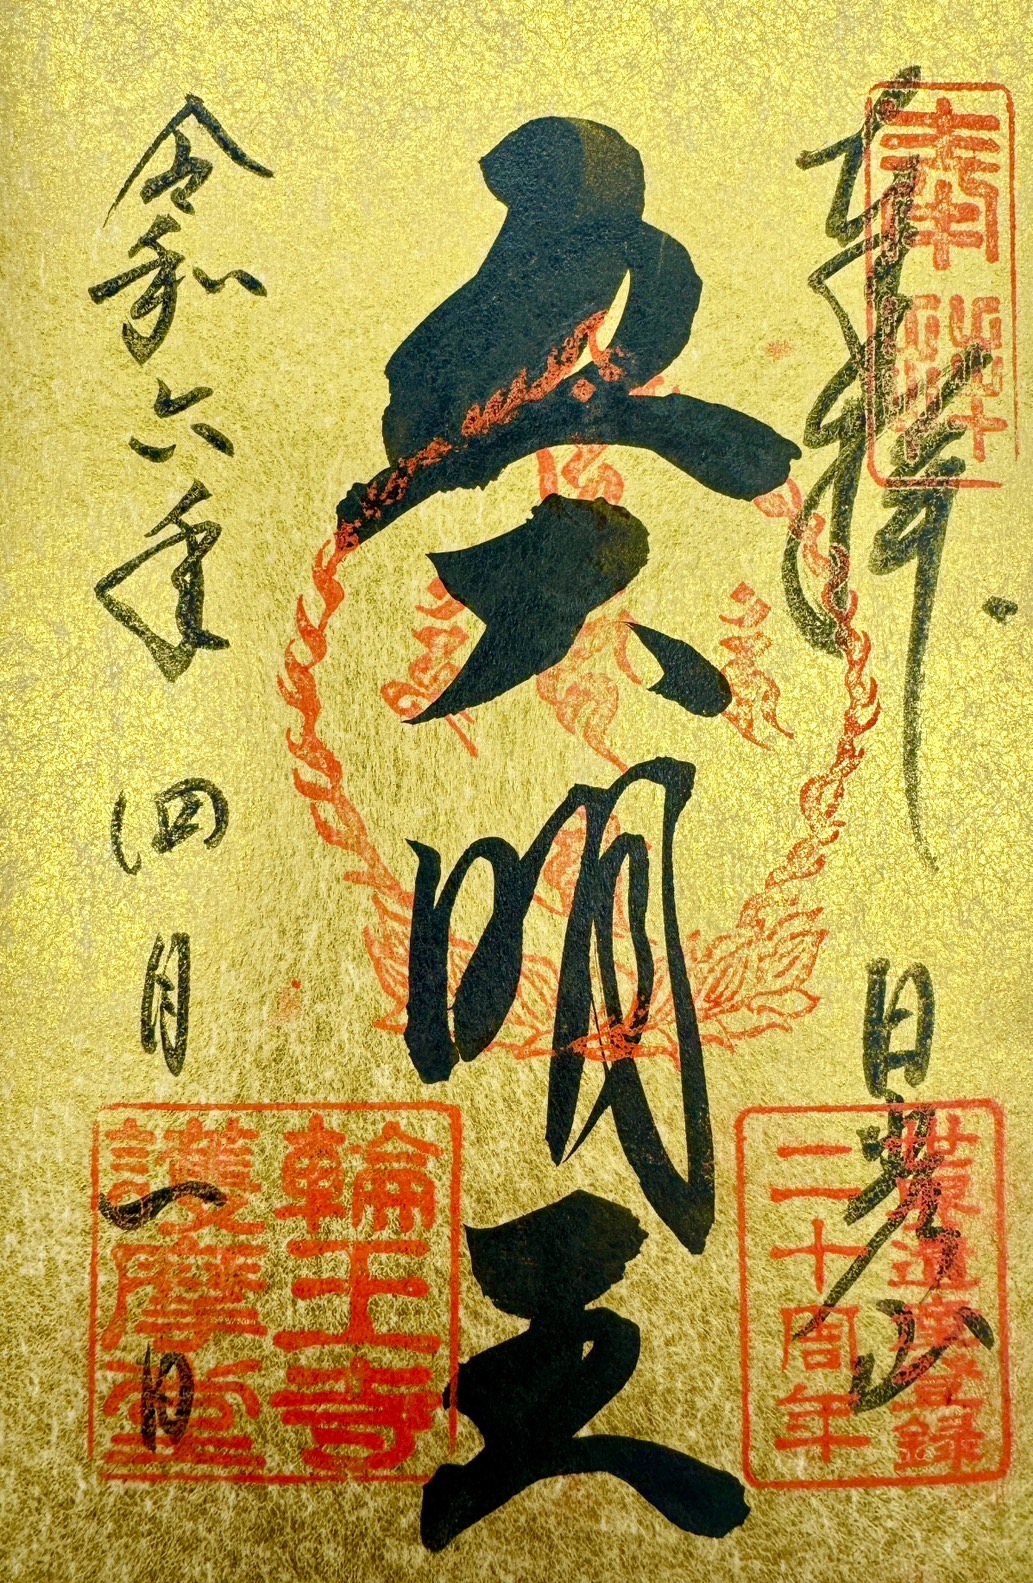 奉拝
日光山
世界遺産登録
二十周年
五大明王
令和六年四月一日
輪王寺
護摩堂